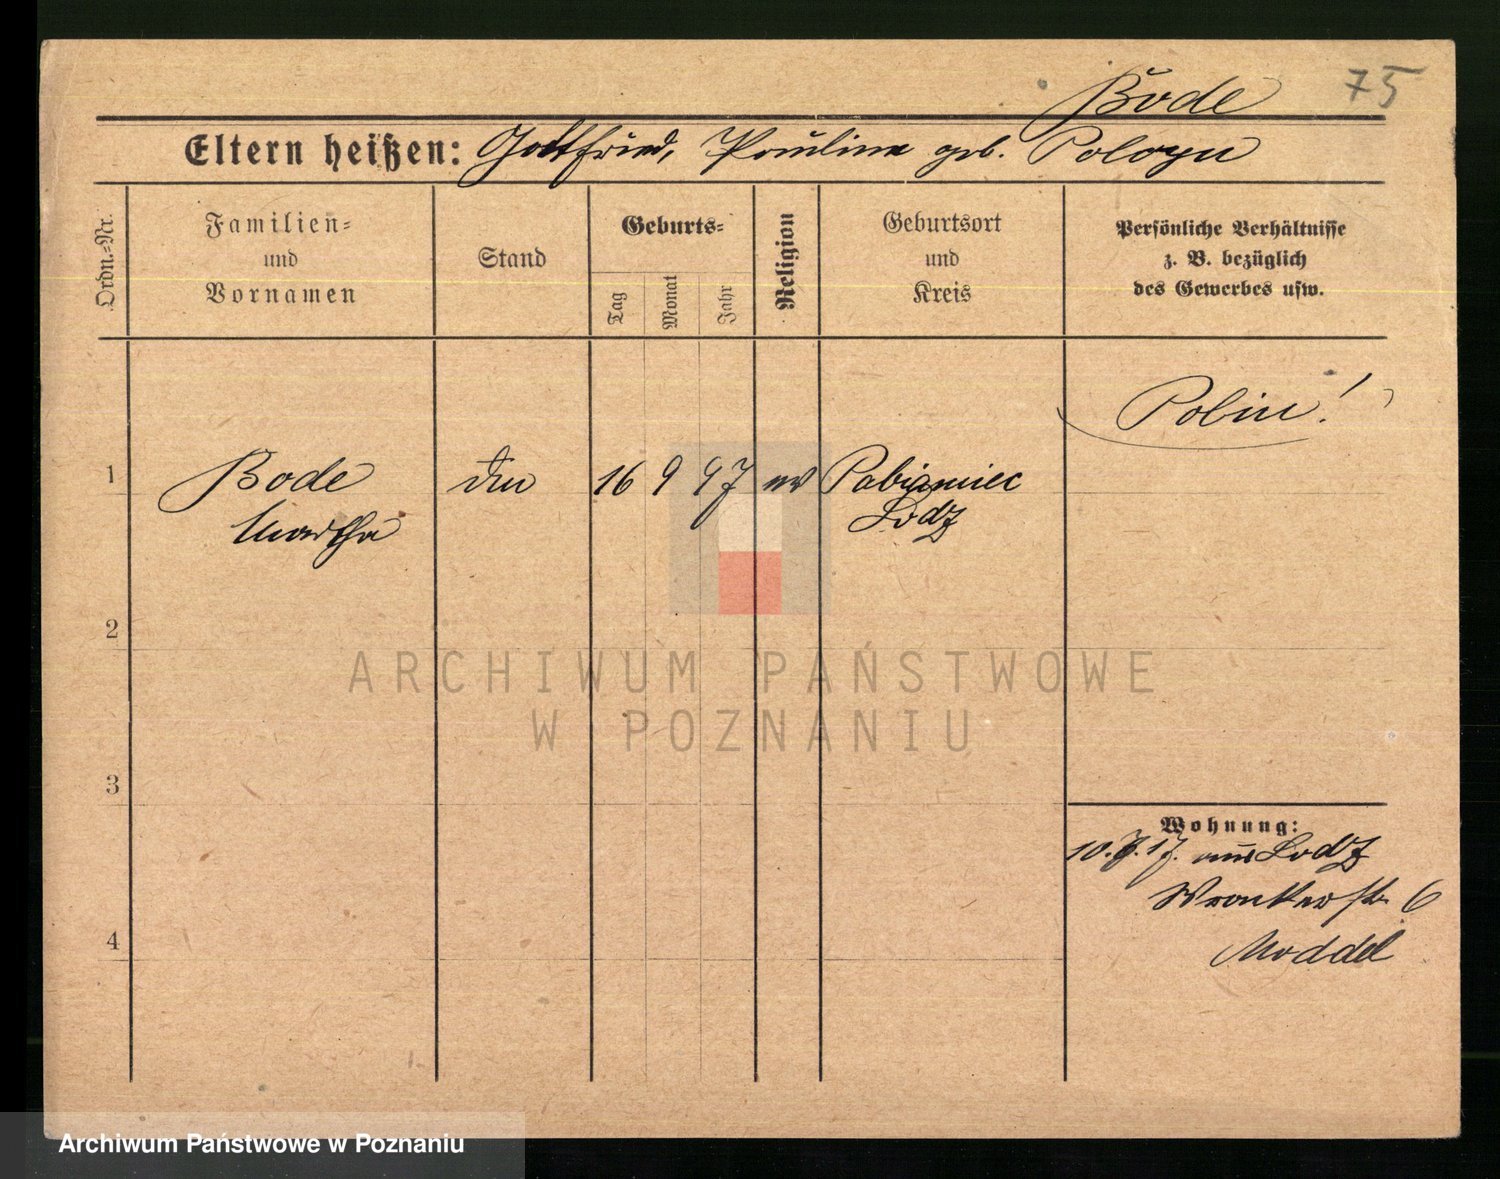 75
Bode
Eltern heißen: Gottfried, Pauline geb. Pologu
Ordn.-Nr.
Familien-
und
Vornamen
Stand
Geburts-
Tag
Monat
Jahr
Religion
Geburtsort
und
Kreis
Persönliche Verhältnisse
z. B. bezüglich
des Gewerbes usw.
Polin!
1
Bode
Martha
16 9 97 ev
Pabianiec
Lodz
2
3
4
Wohnung:
10.7.17. aus Lodz
Wronkerstr 6
Moddel
ARCHIWUM PAŃSTWOWE
W POZNANIU
Archiwum Państwowe w Poznaniu